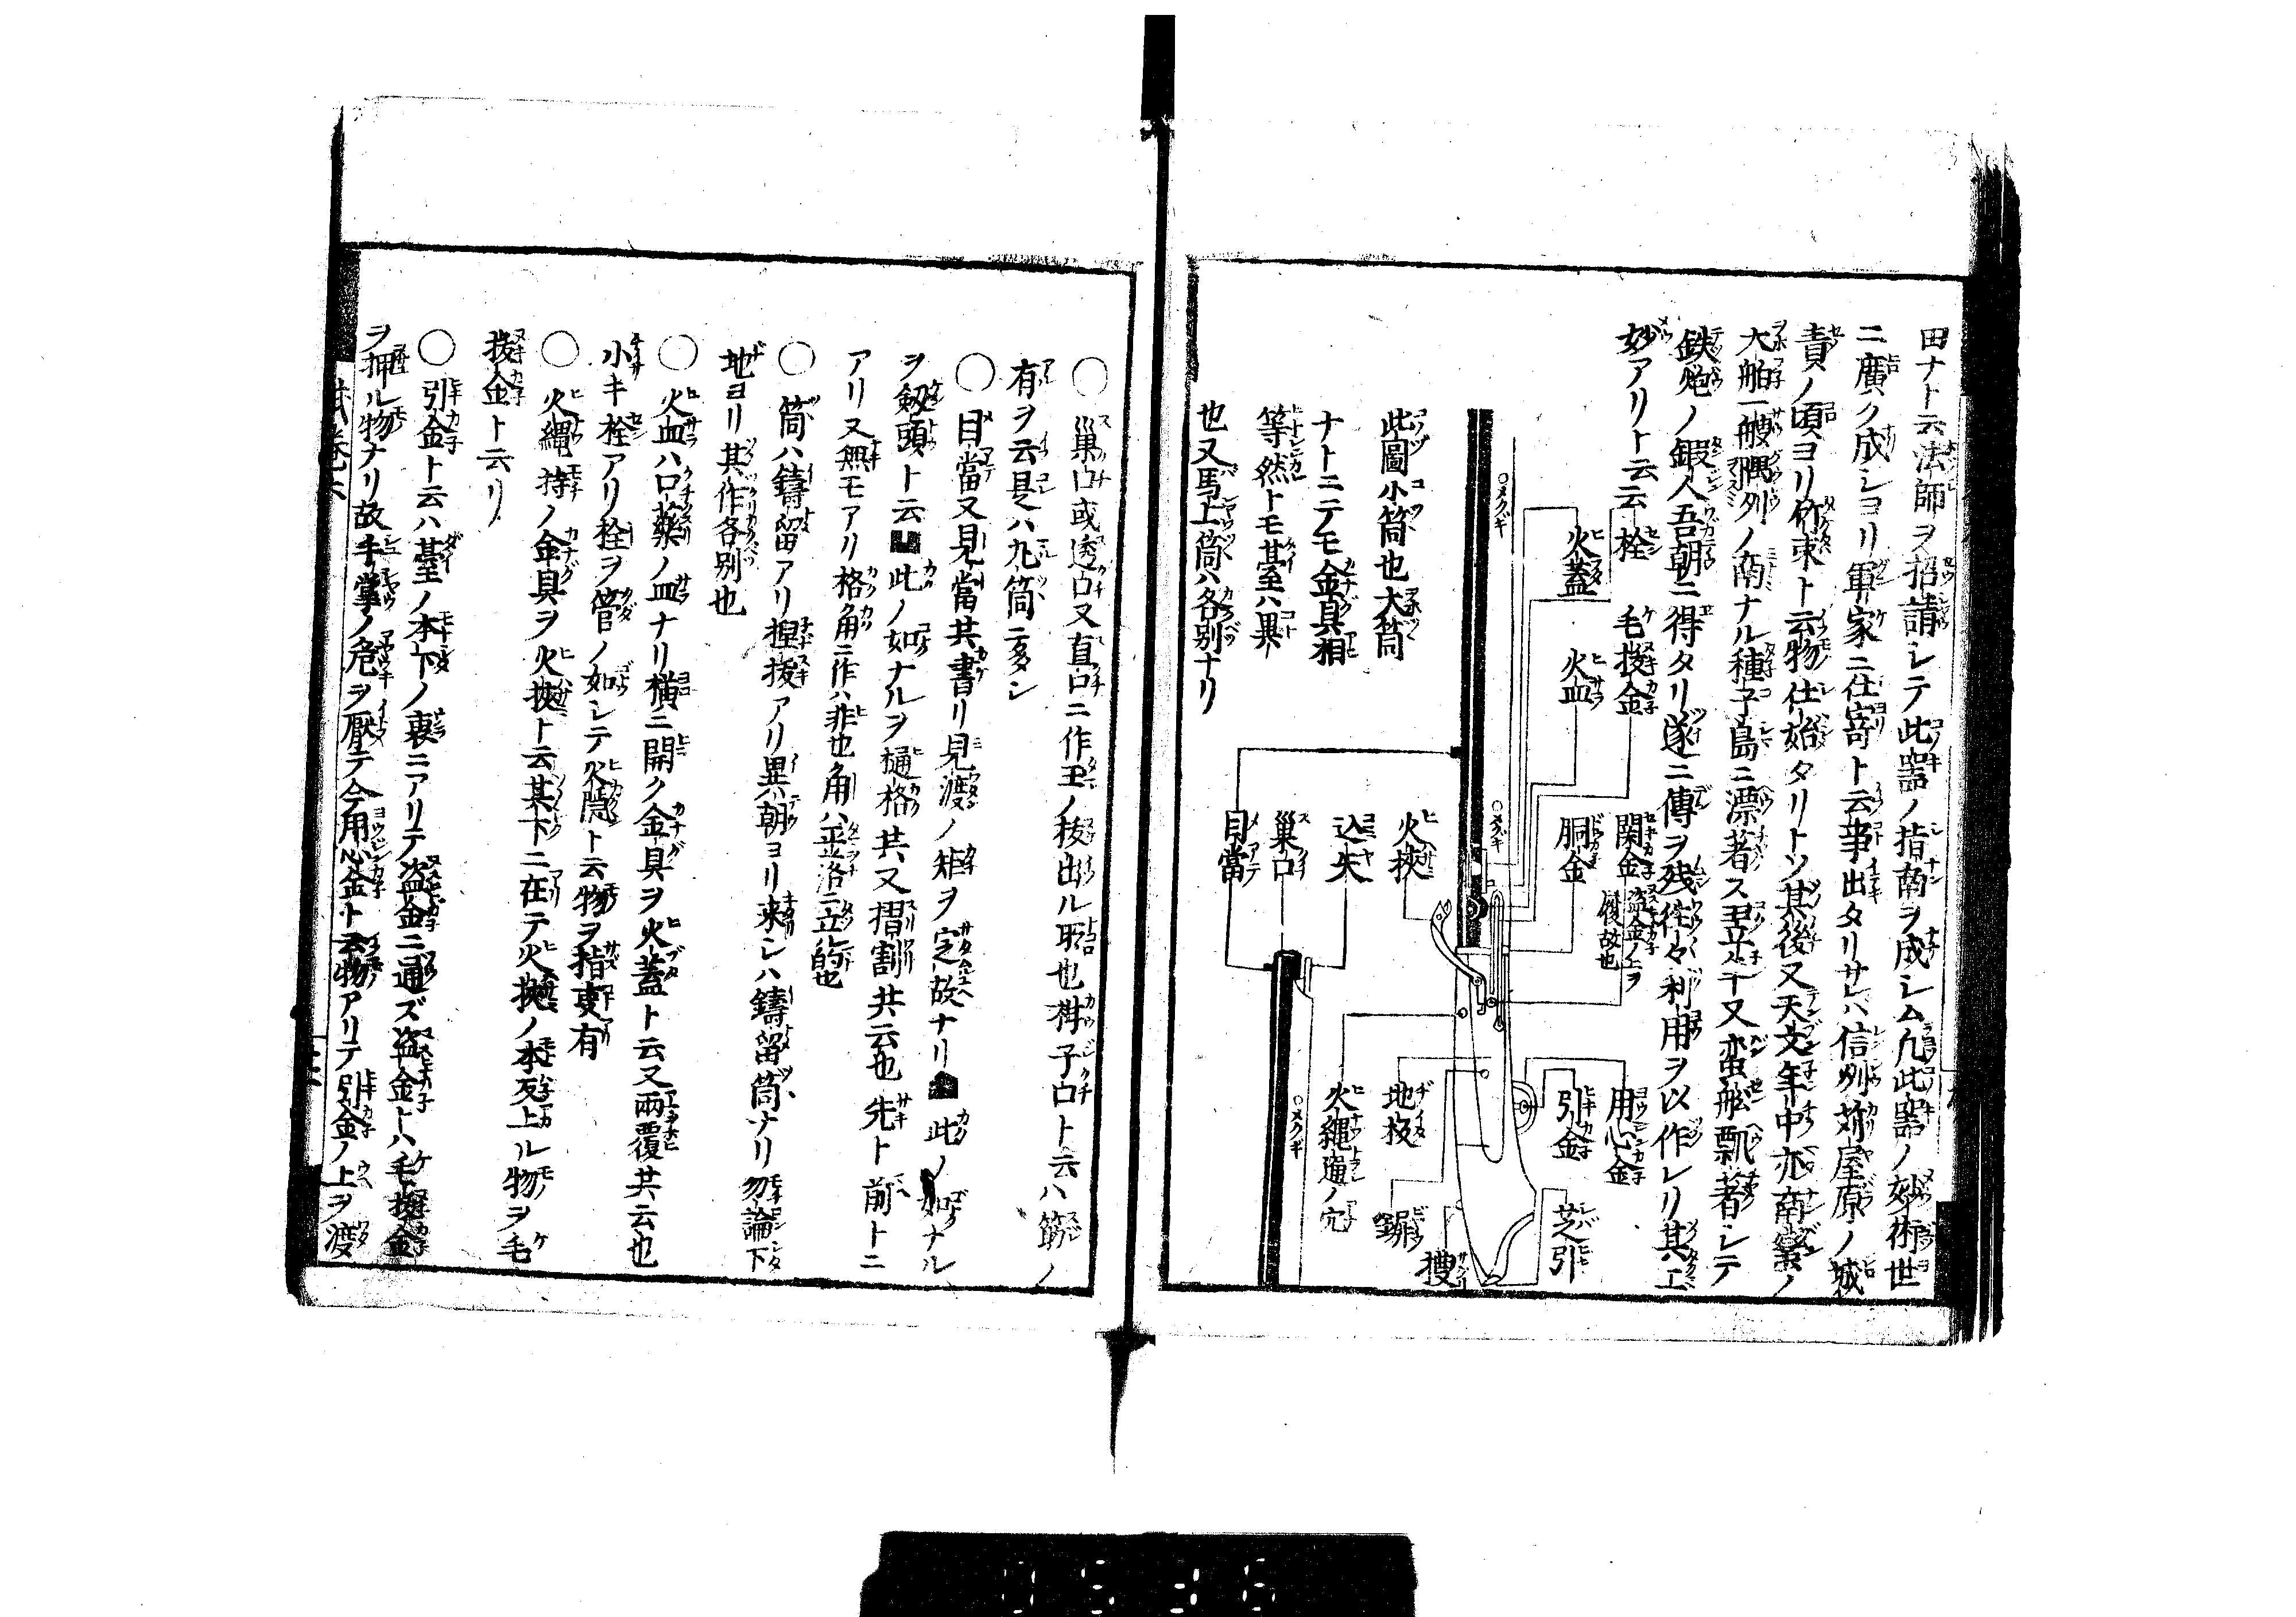 田ナト云法師ヲ招請シテ此器ノ指南ヲ成シム凢此器ノ妙術世
ニ廣ク成シヨリ軍家ニ仕寄ト云事出タリサレハ信州苅屋原ノ城
責ノ頃ヨリ竹束ト云物仕始タリトソ其後又天文年中亦南蛮ノ
大舶一艘隅州ノ南ナル種子島ニ漂著ス翌年又蛮舩飄著シテ
鉄炮ノ鍜人吾朝ニ得タリ遂ニ傳ヲ残徃々利用ヲ以作レリ其工
妙アリト云云
栓
毛拔金
関金
盗金ノ上ヲ
履故也
用心金
火蓋
火皿
胴金
引金
芝引
メクギ
メクギ
此圖小筒也大筒
ナトニテモ金具相
等然トモ臺ハ異
也又馬上筒ハ各別ナリ
火挾
込矢
巣口
目當
地板
火縄通ノ穴
鋲
メクギ
〇巣口或透口又直口ニ作玉ノ秡出ル所也柑子口ト云ハ筋ノ
有ヲ云是ハ丸筒ニ多シ
〇目當又見當共書リ見渡ノ矩ヲ定故ナリ 此ノ如ナル
ヲ劔頭ト云 此ノ如ナルヲ樋格共又摺割共云也先ト前トニ
アリ又無モアリ格角ニ作ハ非也角ハ並洛ニ立的也
〇筒ハ鑄留アリ捏拔アリ異朝ヨリ来シハ鑄留筒ナリ勿論下
地ヨリ其作各别也
〇火皿ハ口藥ノ皿ナリ横ニ開ク金具ヲ火蓋ト云又兩覆共云也
小キ栓アリ栓ヲ管ノ如シテ火隠ト云物ヲ指叓有
〇火縄持ノ金具ヲ火挾ト云其下ニ在テ火挾ノ本死上ル物ヲ毛
拔金ト云リ
〇引金ト云ハ基ノ本下ノ裏ニアリテ盗金ニ通ズ盗金トハ毛拔金
ヲ押ル物ナリ故手掌ノ危ヲ厭テ今用心金ト云物アリテ引金ノ上ヲ渡